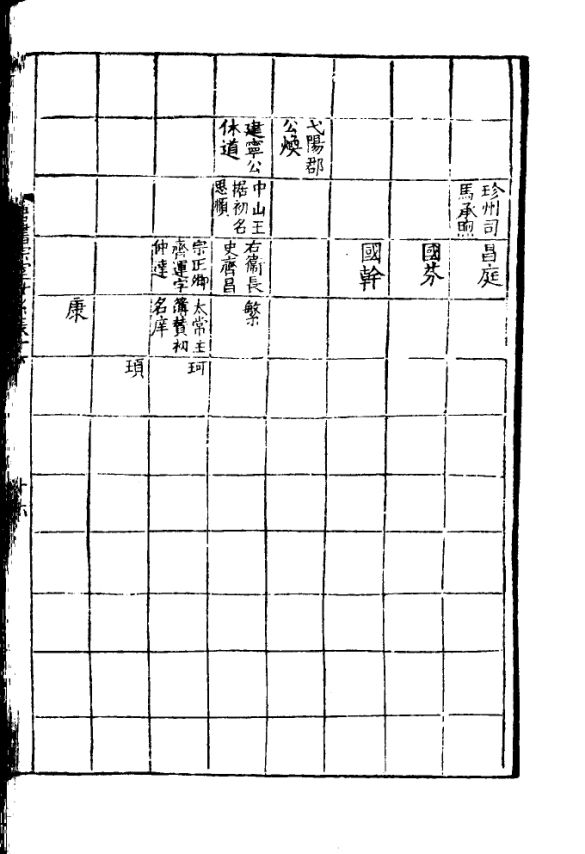 珍州司
馬承煦
昌庭
國芬
國幹
弋陽郡
公煥
建寧公
休道
中山王
琚初名
思順
右衞長
史齊昌
繁
宗正卿
齊運字
仲達
太常主
簿贊初
名庠
珂
頊
康
廿六